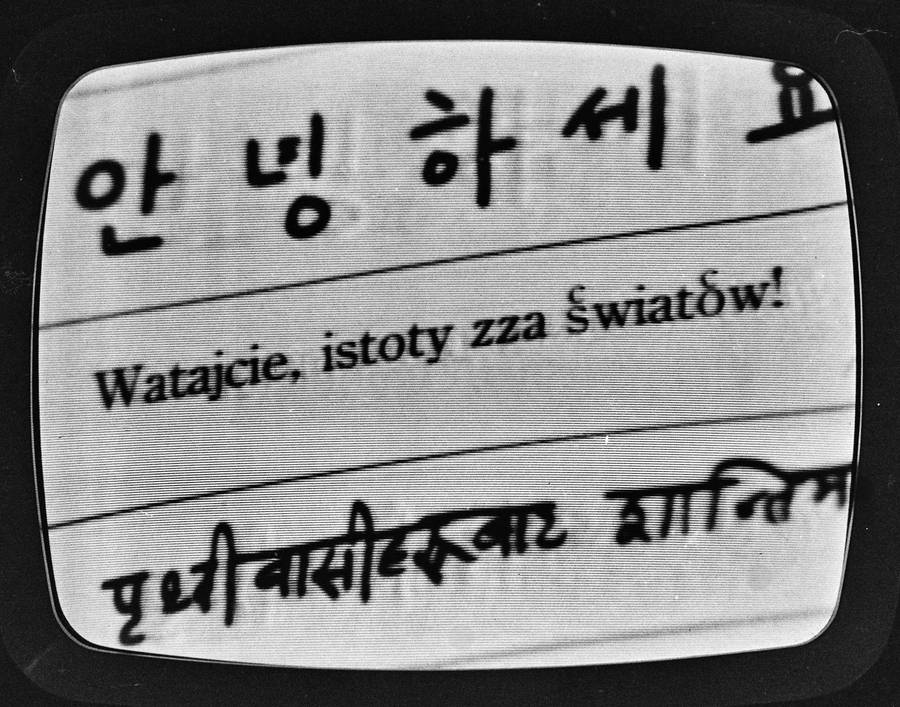 안녕하세요
Watajcie, istoty zza światów!
पृथ्वीवासीहरूबाट शान्तिम